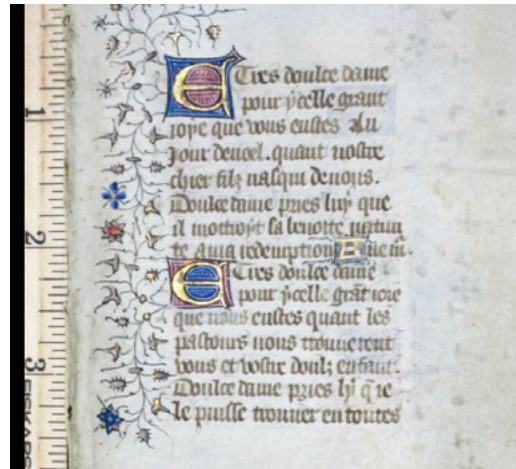 E Tres doulce dame
pour ycelle grant
ioye que vous eustes Au
Jour denoel. quant nostre
chier filz nasqui de vous.
Doulce dame pries luy que
il mottroyt sa benoite natiui
te A ma redemption Aue m̄.
E Tres doulce dame
pour ycelle grāt ioie
que vous eustes quant les
pastours vous trouuerent
vous et vostre doulz enfant.
Doulce dame pries lui q̄ ie
le puisse trouuer en toutes
1
2
3
FISKARS